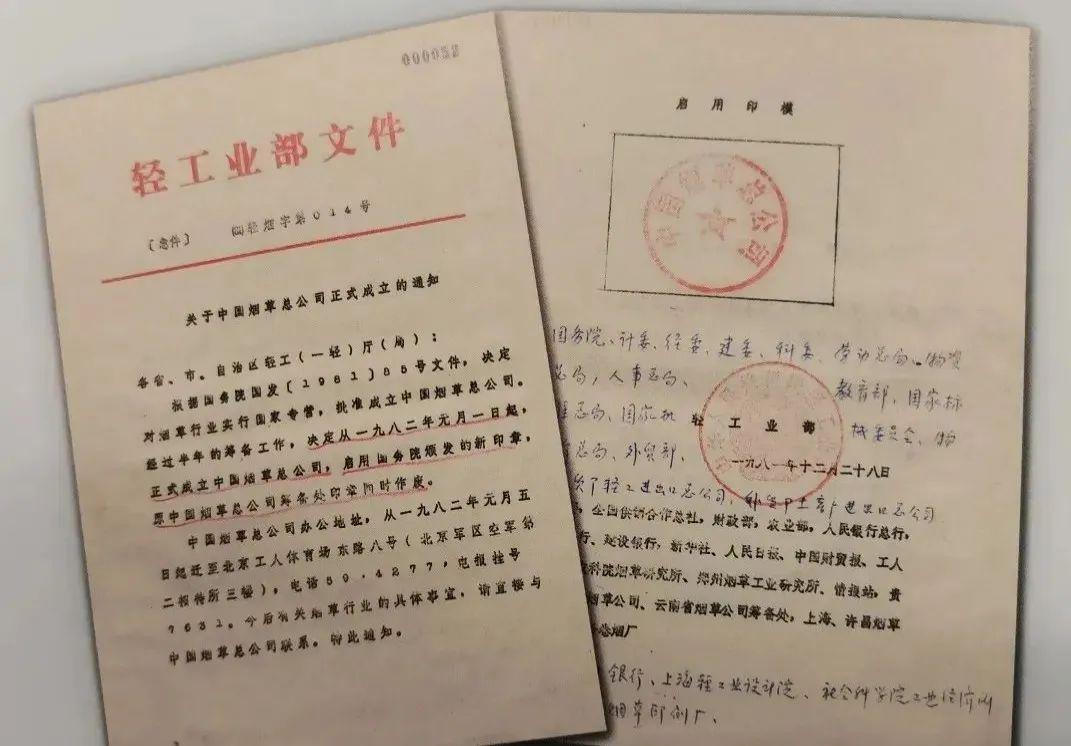 000052
轻工业部文件
〔急件〕 轻烟字第014号
关于中国烟草总公司正式成立的通知
各省、市、自治区轻工(一轻)厅(局):
根据国务院国发〔1981〕85号文件,决定
对烟草行业实行国家专营,批准成立中国烟草总公司。
经过半年的筹备工作,决定从一九八二年元月一日起,
正式成立中国烟草总公司,启用国务院颁发的新印章,
原中国烟草总公司筹备处印章同时作废。
中国烟草总公司办公地址,从一九八二年元月五
日起迁至北京工人体育场东路八号(北京军区空军第
二招待所三楼),电话59.4277,电报挂号
7631。今后有关烟草行业的具体事宜,请直接与
中国烟草总公司联系。特此通知。
启用印模
中国烟草总公司
国务院、计委、经委、建委、科委、劳动总局、物资
总局,人事总局、 教育部、国家标
总局、国家机 轻工业部 械委员会、物
总局、外贸部、
一九八一年十二月二十八日
轻工进出口总公司, 土畜产进出口总公司
,全国供销合作总社,财政部,农业部,人民银行总行,
行、建设银行,新华社、人民日报、中国财贸报、工人
科院烟草研究所、郑州烟草工业研究所、情报站,贵
烟草公司、云南省烟草公司筹备处,上海、许昌烟草
卷烟厂
银行、上海轻工业设计院、社会科学院工业经济所
烟草印刷厂、